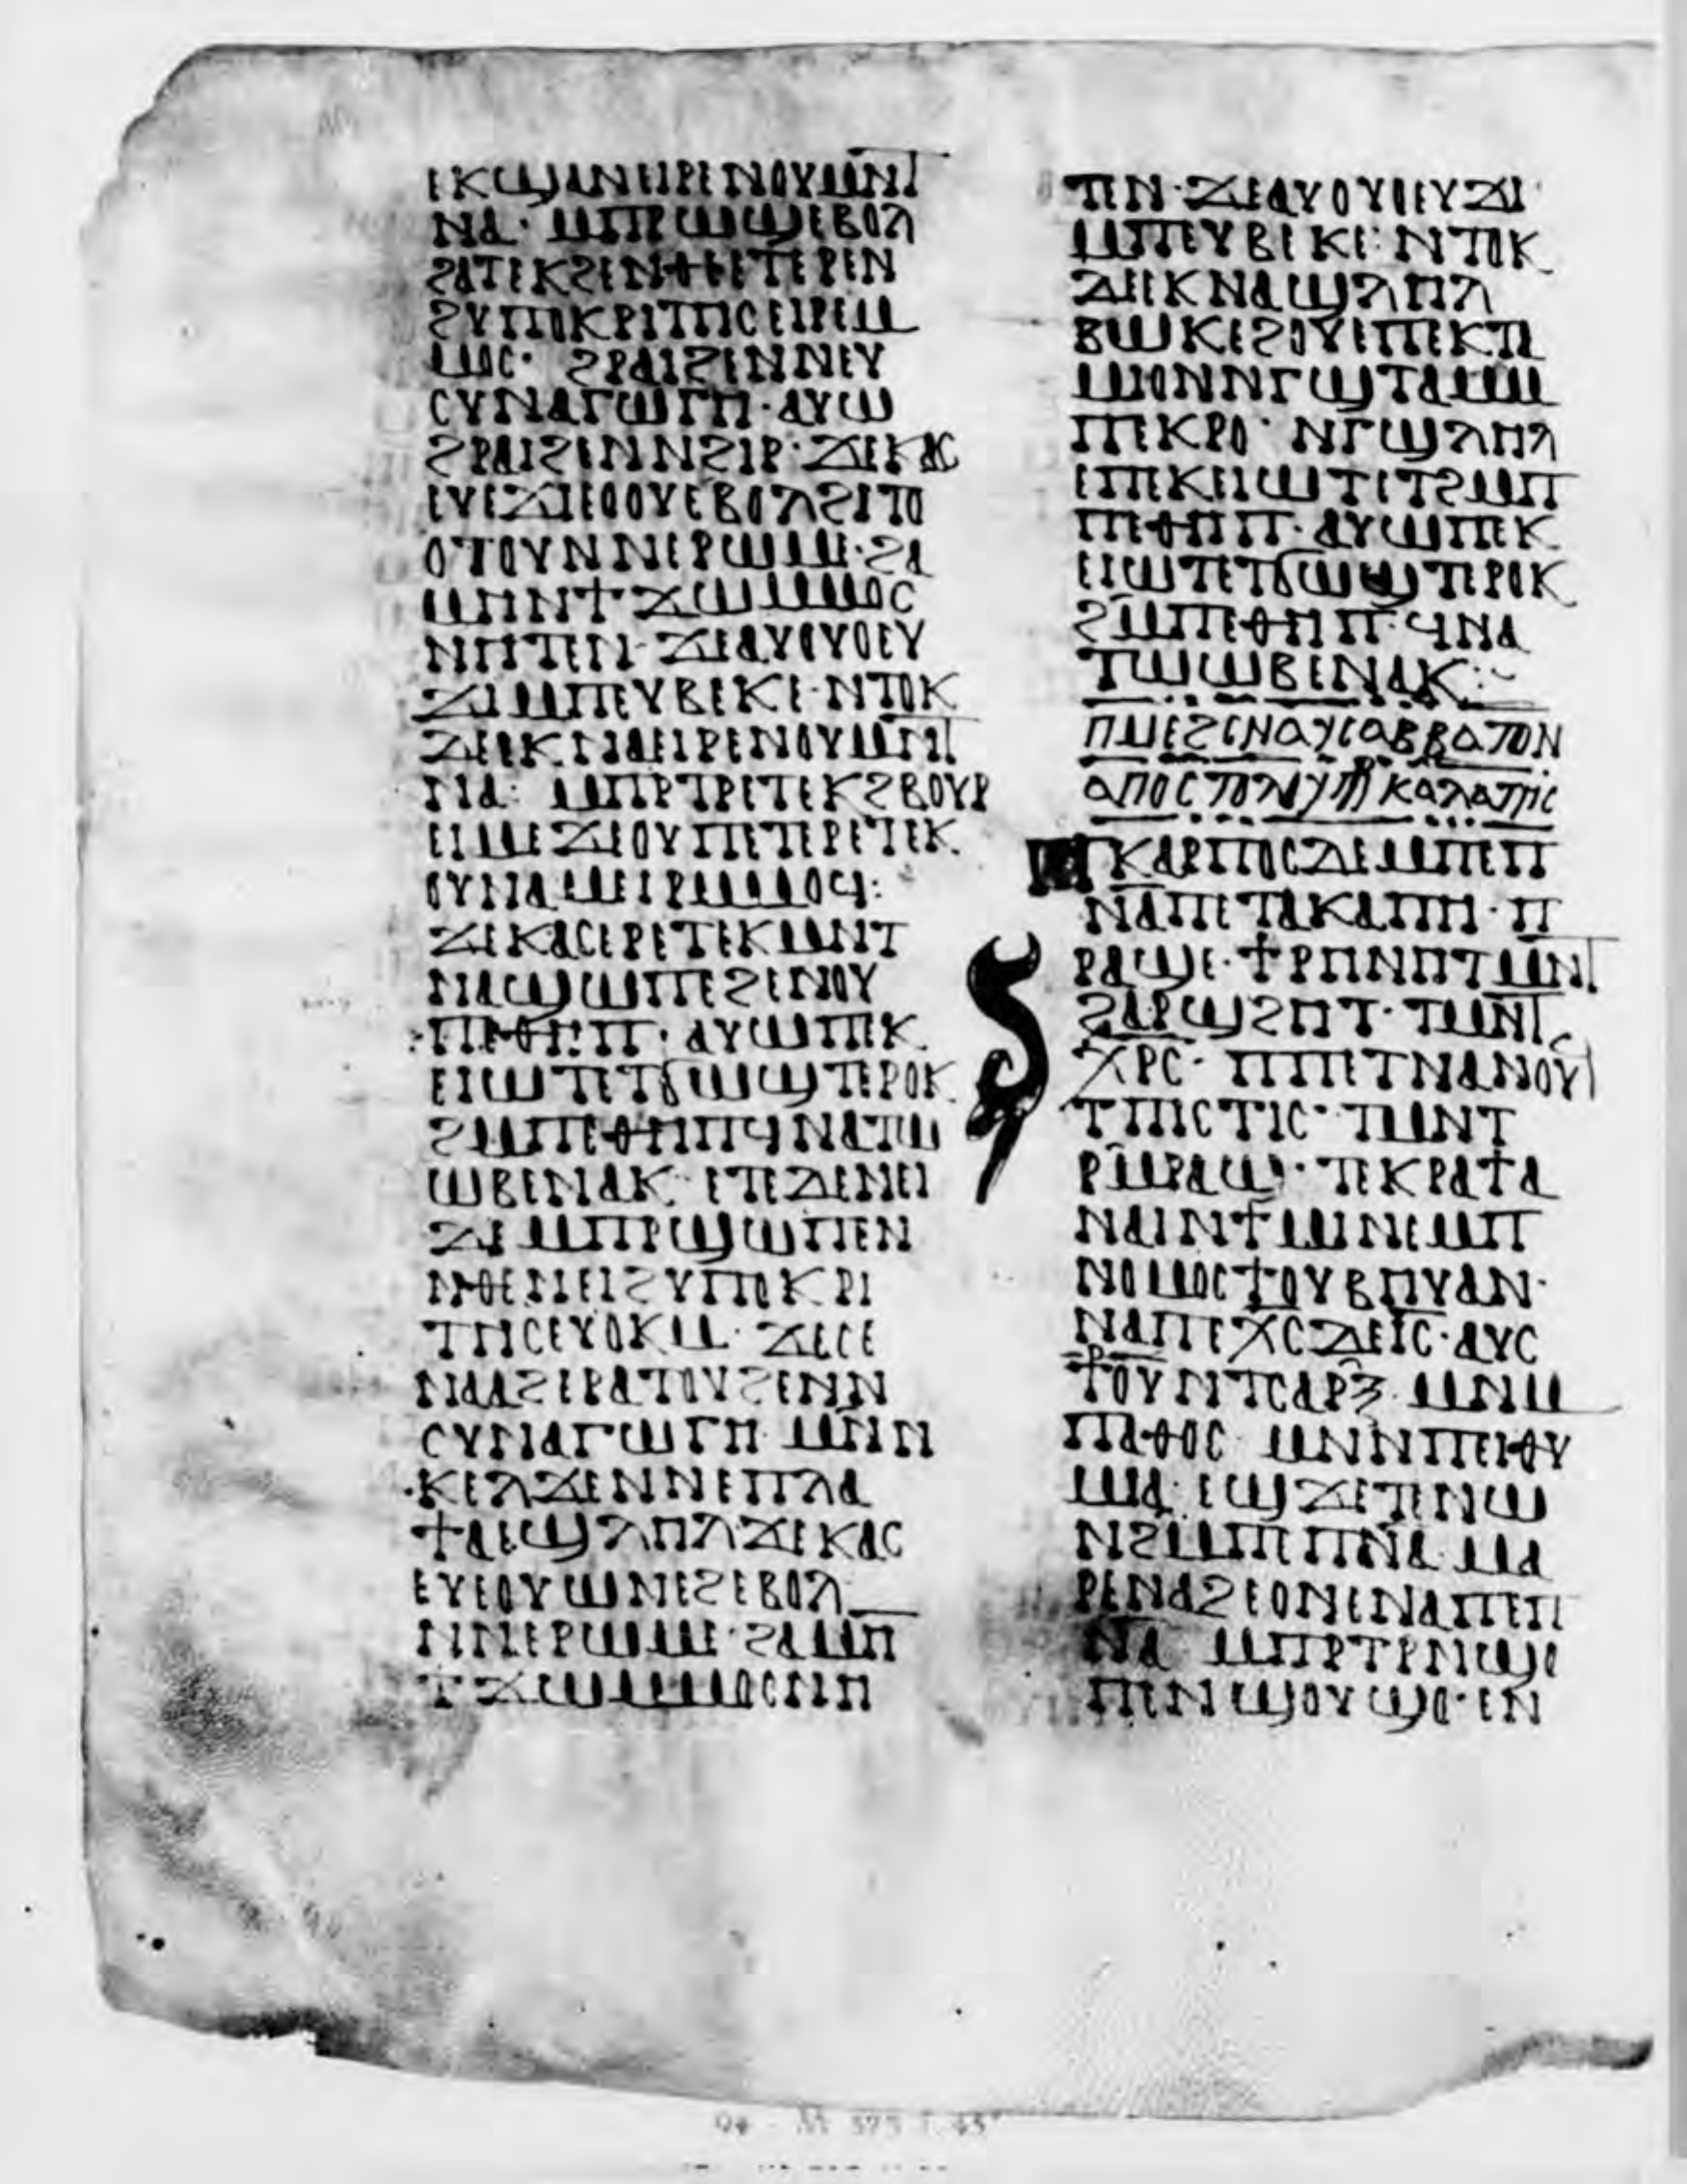 ⲉⲕϣⲁⲛⲉⲓⲣⲉⲛⲟⲩⲙⲛⲧ
ⲛⲁ· ⲙⲡⲣⲱϣⲉⲃⲟⲗ
ϩⲁⲧⲉⲕϩⲉⲛⲑⲉⲉⲧⲉⲣⲉⲛ
ϩⲩⲡⲟⲕⲣⲓⲧⲏⲥⲉⲓⲣⲉⲙ
ⲙⲟⲥ· ϩⲣⲁⲓϩⲉⲛⲛⲉⲩ
ⲥⲩⲛⲁⲅⲱⲅⲏ· ⲁⲩⲱ
ϩⲣⲁⲓϩⲉⲛⲛϩⲓⲣ· ϫⲉⲕⲁⲥ
ⲉⲩⲉϫⲓⲉⲟⲟⲩⲉⲃⲟⲗϩⲓⲧⲟ
ⲟⲧⲟⲩⲛⲛⲉⲣⲱⲙⲉ· ϩⲁ
ⲙⲏⲛϯϫⲱⲙⲙⲟⲥ
ⲛⲏⲧⲉⲛ· ϫⲉⲁⲩⲟⲩⲟⲉⲩ
ϫⲓⲙⲡⲉⲩⲃⲉⲕⲉ· ⲛⲧⲟⲕ
ϫⲉⲉⲕⲛⲁⲉⲓⲣⲉⲛⲟⲩⲙⲛⲧ
ⲛⲁ: ⲙⲡⲣⲧⲣⲉⲧⲉⲕϩⲃⲟⲩⲣ
ⲉⲓⲙⲉϫⲉⲟⲩⲡⲉⲧⲉⲣⲉⲧⲉⲕ
ⲟⲩⲛⲁⲙⲉⲓⲣⲙⲙⲟϥ:
ϫⲉⲕⲁⲥⲉⲣⲉⲧⲉⲕⲙⲛⲧ
ⲛⲁϣⲱⲡⲉϩⲉⲛⲟⲩ
ⲡⲉⲑⲏⲡ· ⲁⲩⲱⲡⲉⲕ
ⲉⲓⲱⲧⲉⲧϭⲱϣⲧⲉⲣⲟⲕ
ϩⲙⲡⲉⲑⲏⲡϥⲛⲁⲧⲱ
ⲱⲃⲉⲛⲁⲕ· ⲉⲧⲉⲇⲉⲛⲉⲓ
ϫⲉ ⲙⲡⲣϣⲱⲡⲉⲛ
ⲛⲑⲉⲛⲉⲓϩⲩⲡⲟⲕⲣⲓ
ⲧⲏⲥⲉⲩⲟⲕⲙ· ϫⲉⲥⲉ
ⲛⲁⲁϩⲉⲣⲁⲧⲟⲩϩⲉⲛⲛ
ⲥⲩⲛⲁⲅⲱⲅⲏ ⲙⲛⲛ
ⲕⲉⲗϫⲉⲛⲛⲉⲡⲗⲁ
ϯⲁⲉϣⲗⲏⲗϫⲉⲕⲁⲥ
ⲉⲩⲉⲟⲩⲱⲛⲉϩⲉⲃⲟⲗ
ⲛⲛⲉⲣⲱⲙⲉ· ϩⲁⲙⲏ
ϯϫⲱⲙⲙⲟⲥⲛⲏ
ⲧⲉⲛ· ϫⲉⲁⲩⲟⲩⲟⲉⲩϫⲓ
ⲙⲡⲉⲩⲃⲉⲕⲉ: ⲛⲧⲟⲕ
ϫⲉⲉⲕⲛⲁϣⲗⲏⲗ
ⲃⲱⲕⲉϩⲟⲩⲉⲡⲉⲕⲧⲁ
ⲙⲓⲟⲛⲛⲅϣⲧⲁⲙⲙ
ⲡⲉⲕⲣⲟ· ⲛⲅϣⲗⲏⲗ
ⲉⲡⲉⲕⲉⲓⲱⲧⲉⲧϩⲙⲡ
ⲡⲉⲑⲏⲡ· ⲁⲩⲱⲡⲉⲕ
ⲉⲓⲱⲧⲉⲧϭⲱϣⲧⲉⲣⲟⲕ
ϩⲙⲡⲉⲑⲏⲡ· ϥⲛⲁ
ⲧⲱⲱⲃⲉⲛⲁⲕ:
ⲡⲙⲉϩⲥⲛⲁⲩⲥⲁⲃⲃⲁⲧⲟⲛ
ⲕⲁⲣⲡⲟⲥⲇⲉⲙⲡⲉⲡ
ⲛⲁⲡⲉⲧⲁⲕⲁⲡⲏ· ⲡ
ⲣⲁϣⲉ· ϯⲣⲏⲛⲏⲧⲙⲛⲧ
ϩⲁⲣϣϩⲏⲧ· ⲧⲙⲛⲧ
ⲭⲣⲥ· ⲡⲡⲉⲧⲛⲁⲛⲟⲩ
ⲧⲡⲓⲥⲧⲓⲥ· ⲧⲙⲛⲧ
ⲣⲙⲣⲁϣ· ⲧⲉⲕⲣⲁϯⲁ
ⲛⲁⲓⲛϯⲙⲓⲛⲉⲙⲡ
ⲛⲟⲙⲟⲥϯⲟⲩⲃⲏⲩⲁⲛ·
ⲛⲁⲡⲉⲭⲥⲇⲉⲓⲥ· ⲁⲩⲥ
ϯⲟⲩⲛⲧⲥⲁⲣⲝ· ⲙⲛⲙ
ⲡⲁⲑⲟⲥ ⲙⲛⲛⲡⲉⲓⲑⲩ
ⲙⲓⲁ: ⲉϣϫⲉⲧⲉⲛⲱ
ⲛϩⲙⲡⲉⲡⲛⲁ· ⲙⲁ
ⲣⲉⲛⲁϩⲉⲟⲛⲉⲛⲁⲡⲉⲡ
ⲛⲁ ⲙⲡⲣⲧⲣⲛϣⲟ
ⲡⲉⲛϣⲟⲩϣⲟ· ⲉⲛ